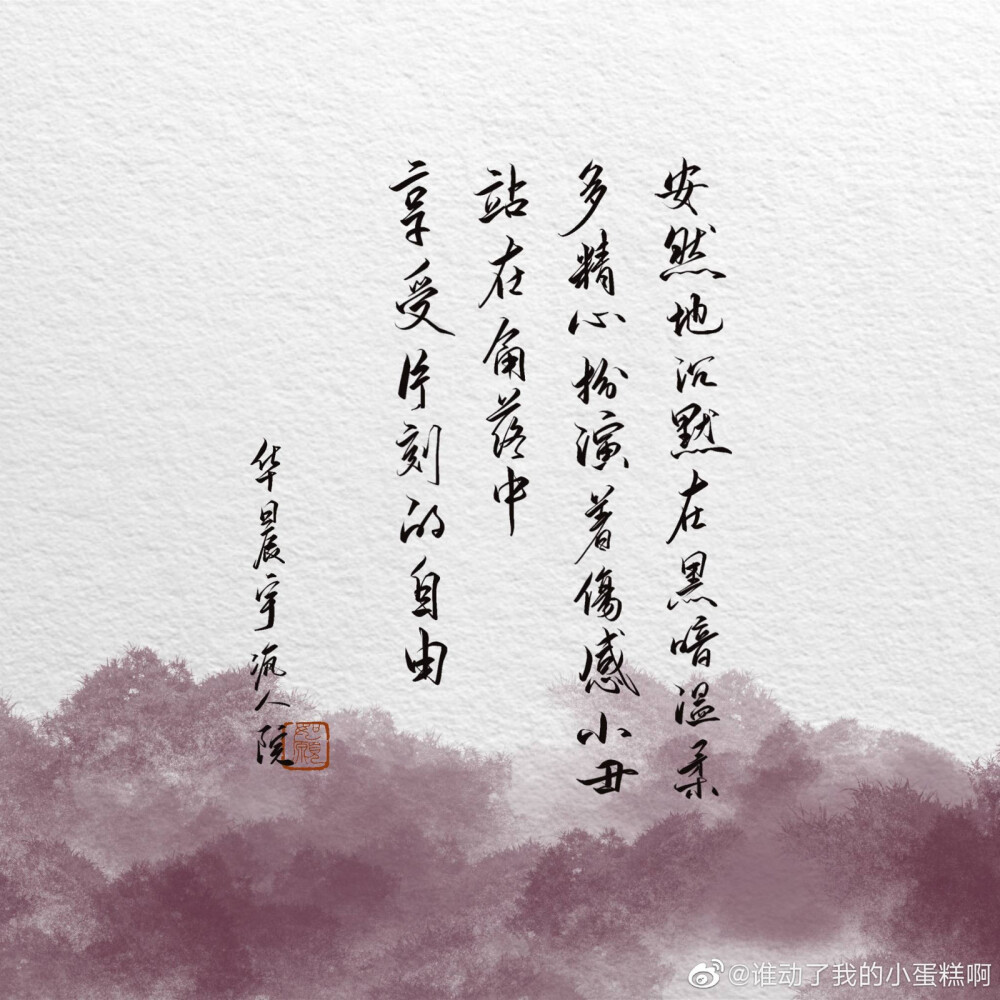 安然地沉默在黑暗温柔
多精心扮演着傷感小丑
站在角落中
享受片刻的自由
华晨宇疯人院
如願
@谁动了我的小蛋糕啊